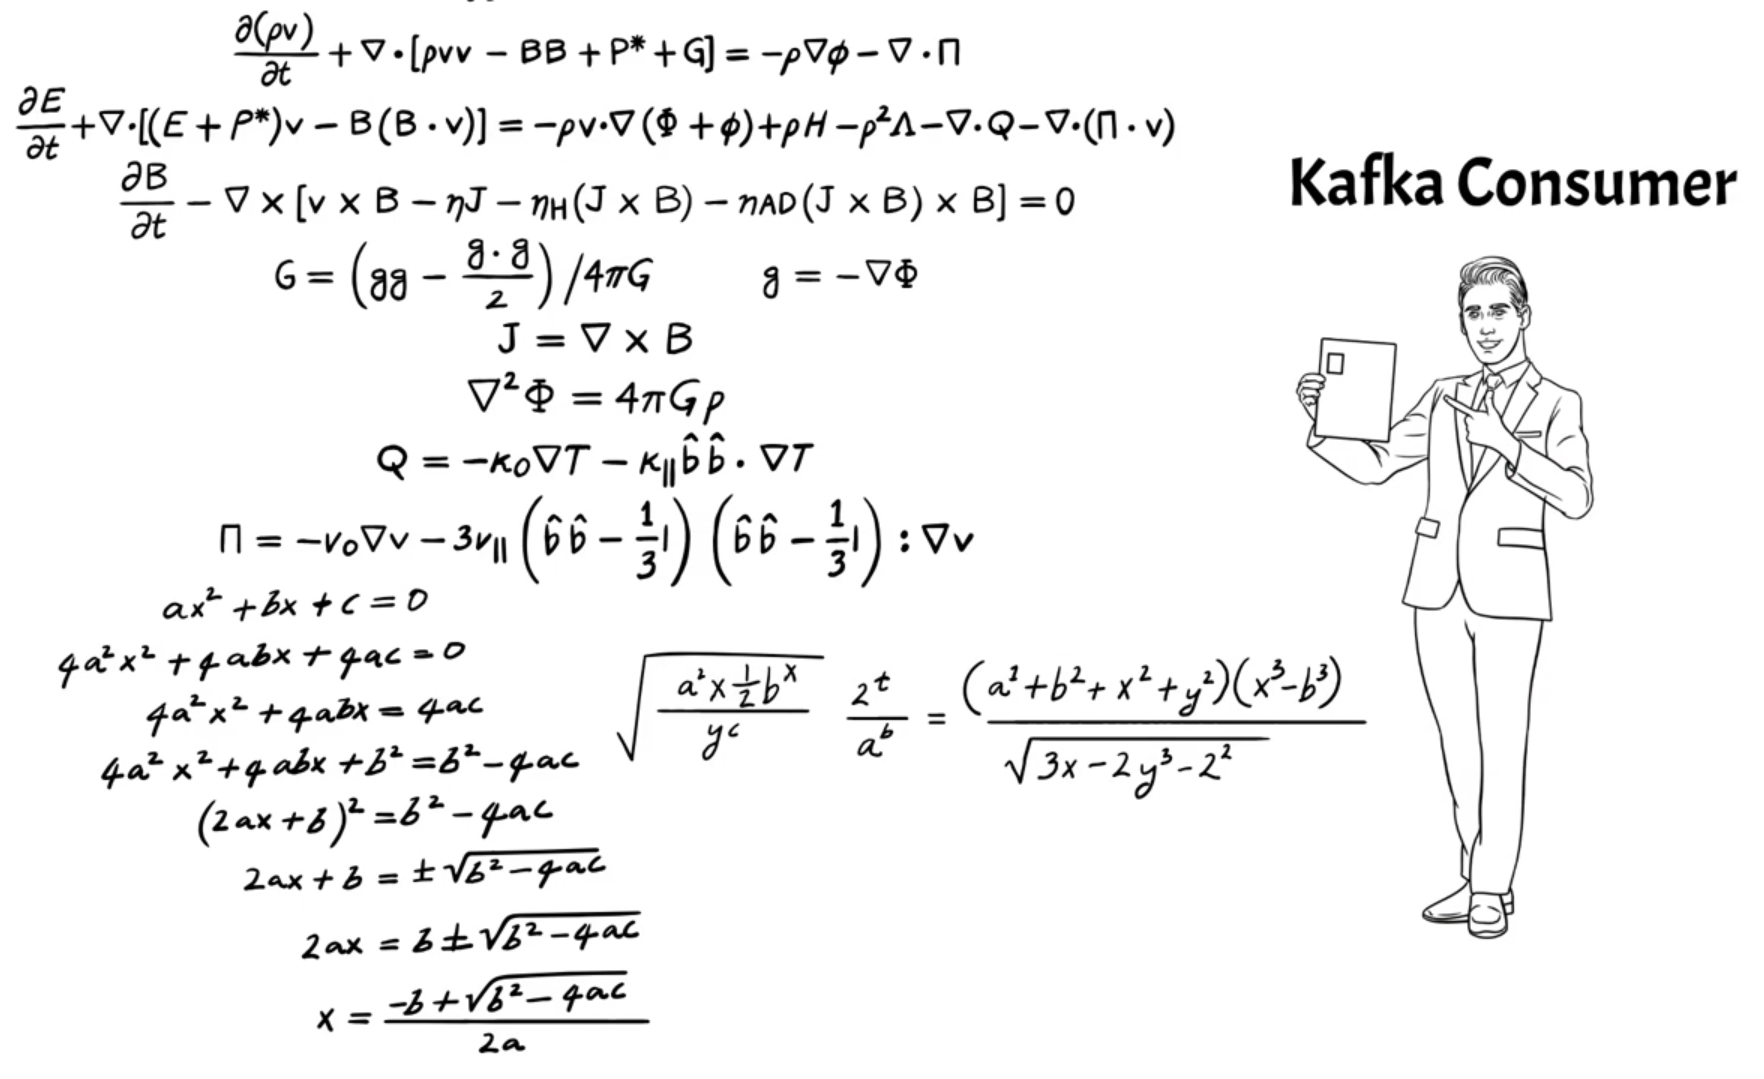 ∂(ρv)/∂t + ∇·[ρvv − BB + P* + G] = −ρ∇ϕ − ∇·Π
∂E/∂t + ∇·[(E + P*)v − B(B·v)] = −ρv·∇(Φ + ϕ) + ρH − ρ²Λ − ∇·Q − ∇·(Π·v)
∂B/∂t − ∇ × [v × B − ηJ − ηH(J × B) − ηAD(J × B) × B] = 0
Kafka Consumer
G = (gg − g·g/2) /4πG    g = −∇Φ
J = ∇ × B
∇²Φ = 4πGρ
Q = −κ₀∇T − κ∥b̂b̂·∇T
Π = −ν₀∇v − 3ν∥(b̂b̂ − 1/3 I)(b̂b̂ − 1/3 I) : ∇v
ax² + bx + c = 0
4a²x² + 4abx + 4ac = 0
4a²x² + 4abx = 4ac
4a²x² + 4abx + b² = b² − 4ac
(2ax + b)² = b² − 4ac
2ax + b = ±√(b² − 4ac)
2ax = b ± √(b² − 4ac)
x = (−b + √(b² − 4ac))/2a
√((a²x ½ b^x)/y^c)  2^t/a^b = ((a² + b² + x² + y²)(x³ − b³))/√(3x − 2y³ − 2²)